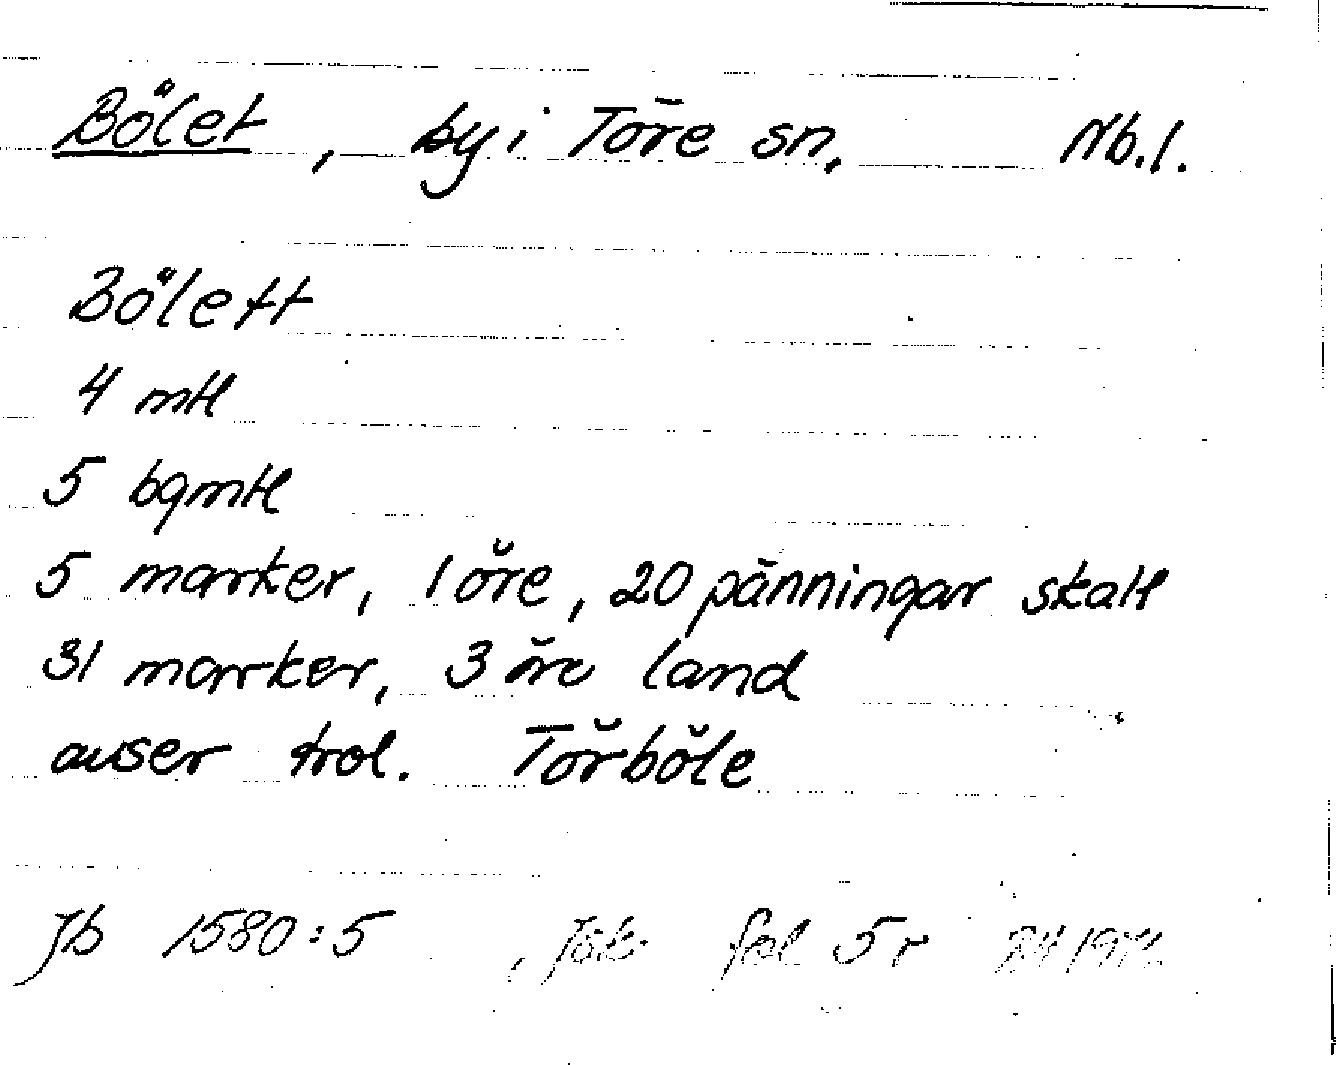 Bölet, by i Töre sn. Nb.l.
Bölett
4 mtl
5 bqmtl
5 marker, 1 öre, 20 pänningar skatt
31 marker, 3 öre land
avser trol. Törböle
Jb 1580:5, fol 5r